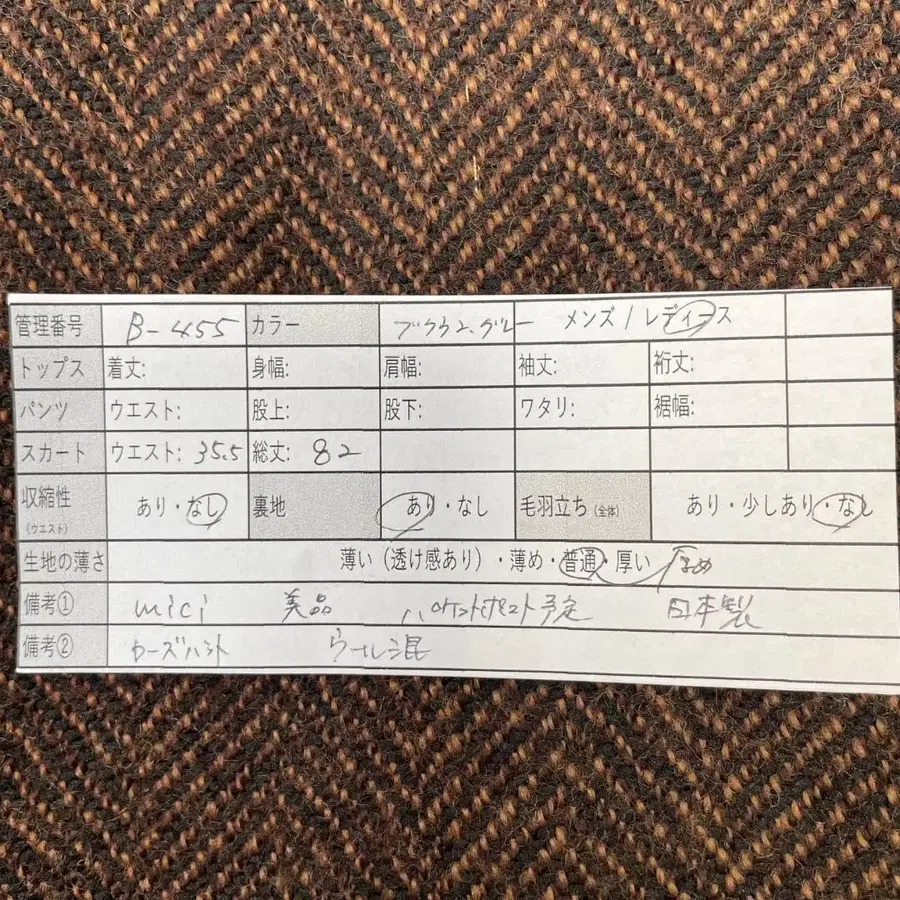 管理番号 B-455 カラー ブラウン、グレー メンズ / レディース
トップス 着丈: 身幅: 肩幅: 袖丈: 裄丈:
パンツ ウエスト: 股上: 股下: ワタリ: 裾幅:
スカート ウエスト: 35.5 総丈: 82
収縮性 (ウエスト) あり・なし 裏地 あり・なし 毛羽立ち (全体) あり・少しあり・なし
生地の薄さ 薄い (透け感あり) ・薄め・普通・厚い 厚め
備考① mici 美品 予定 日本製
備考② ウール混